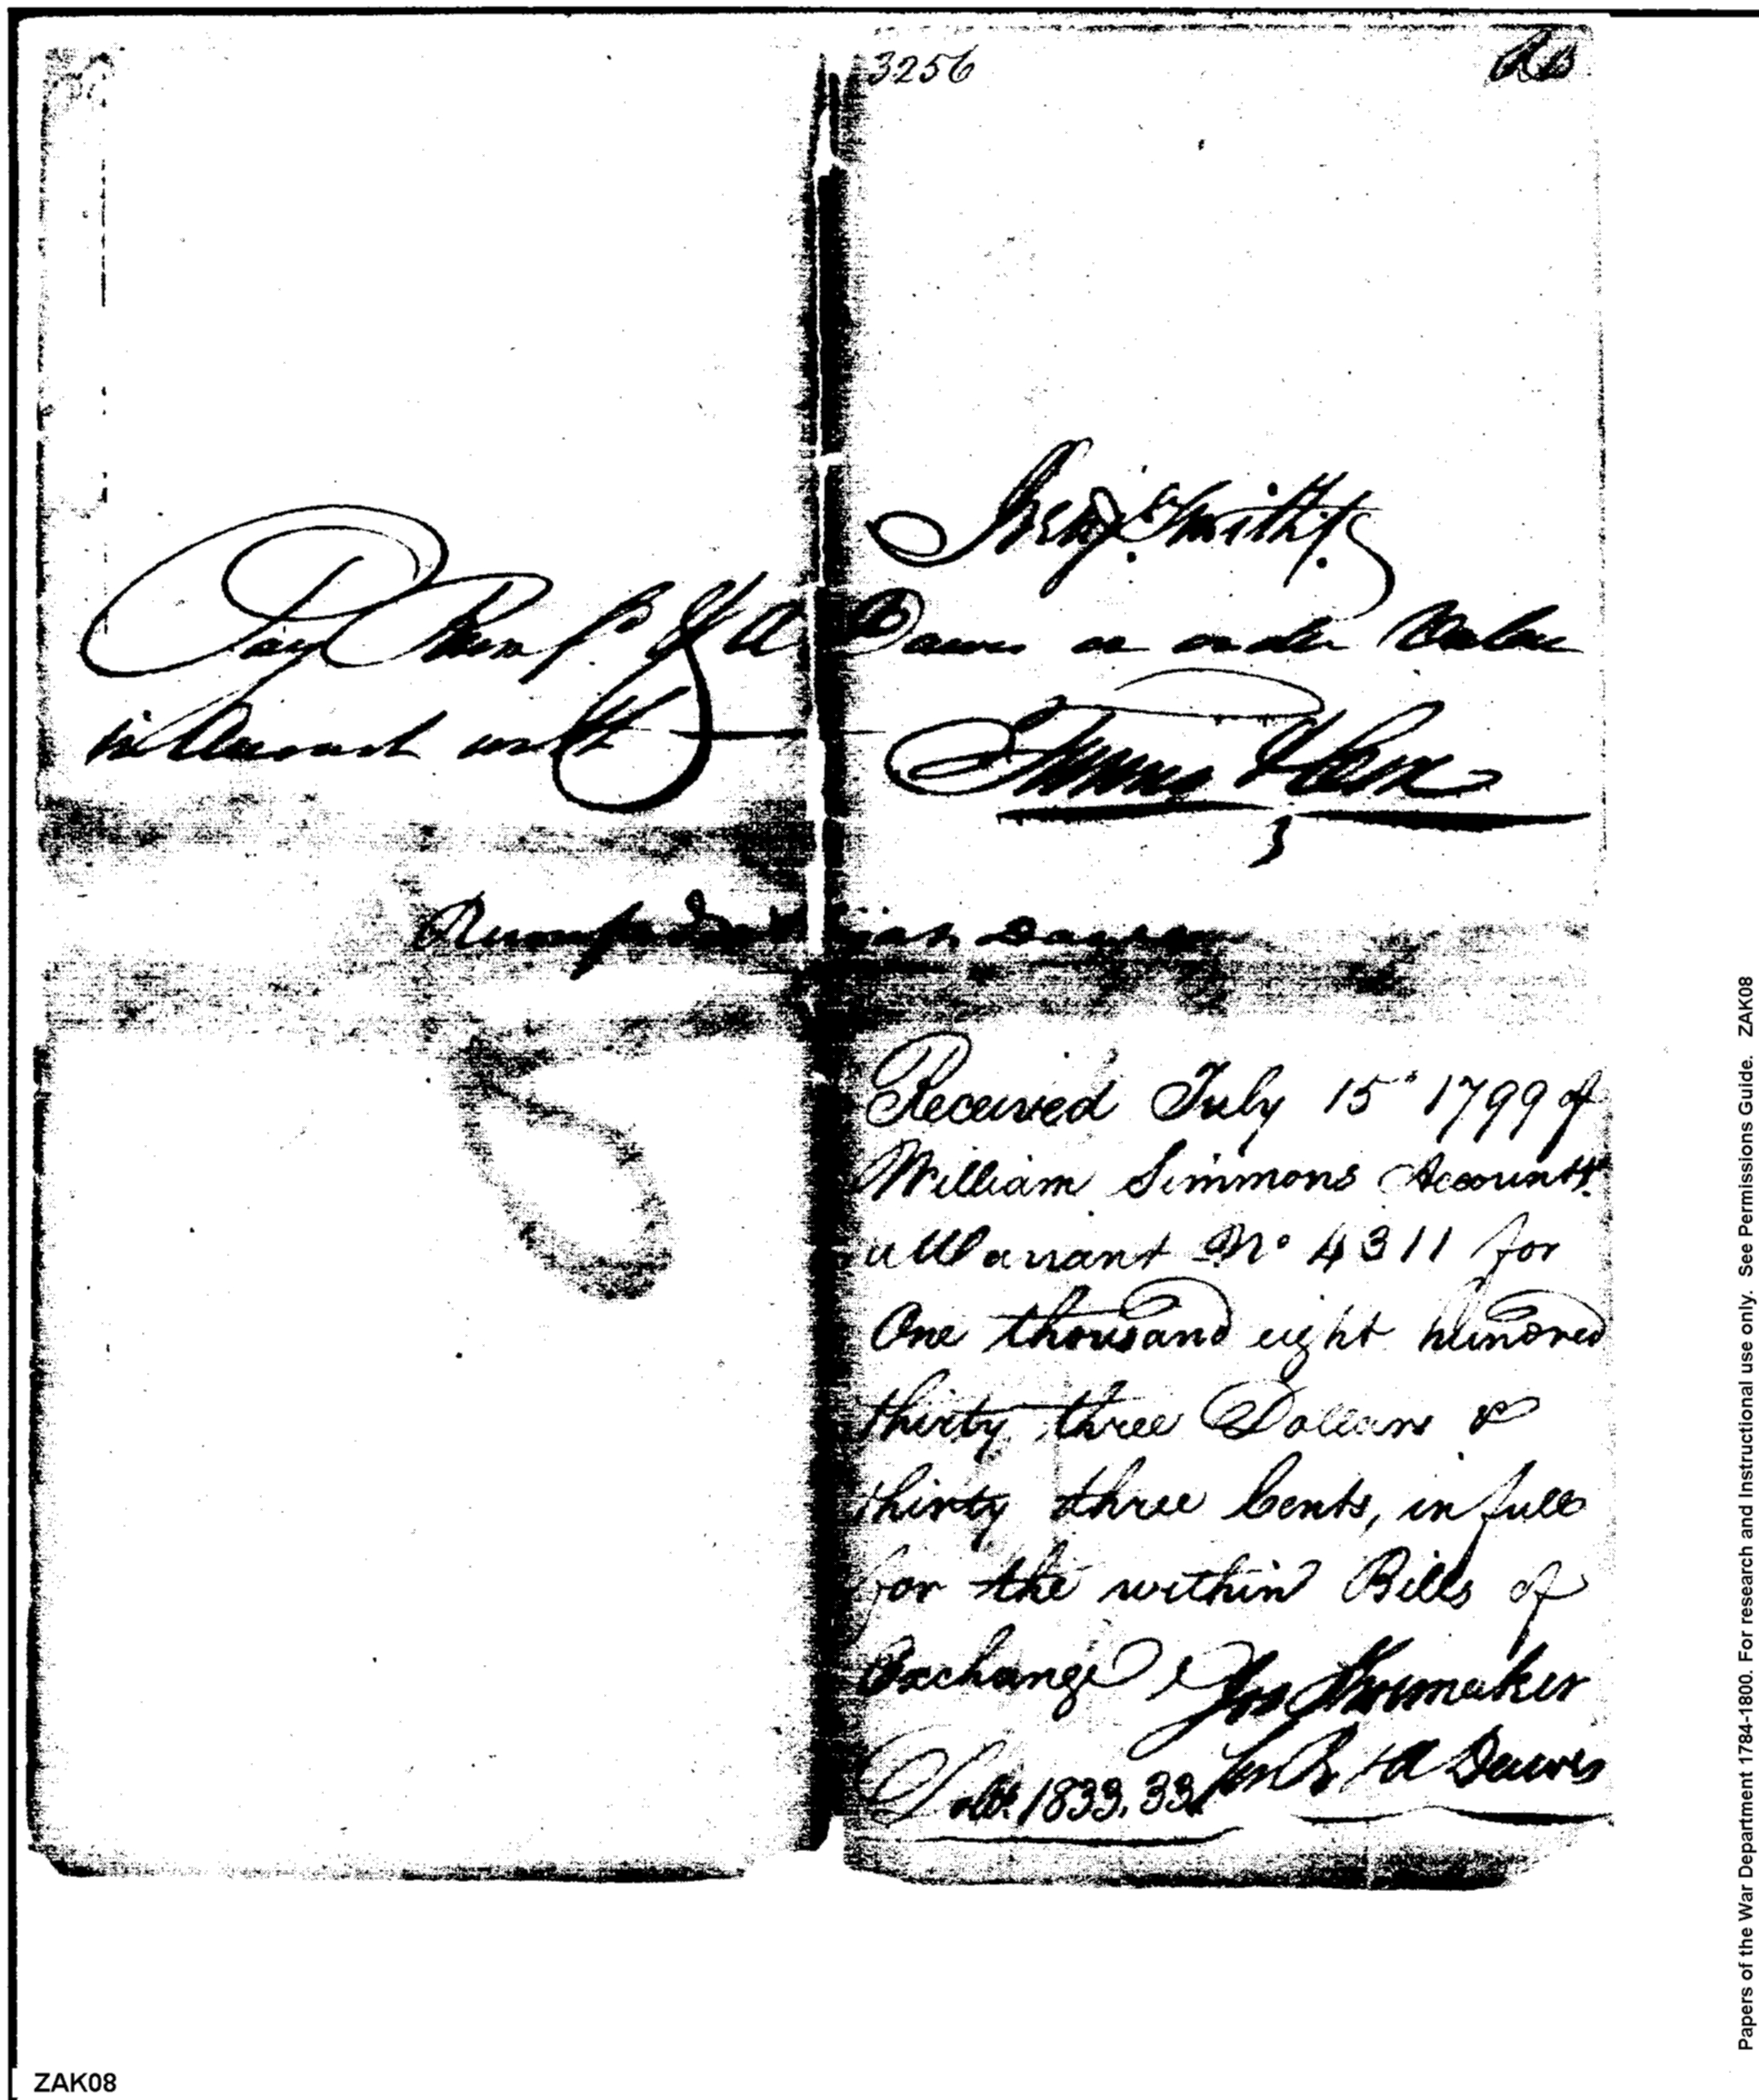 3256
Benj. Smith
Pay & A Dawes or order Value
in Account with
Rumford Dawes
Received July 15 1799 of
William Simmons Accountt.
a Warrant No 4311 for
One thousand eight hundred
thirty three Dollars &
thirty three Cents, in full
for the within Bills of
Exchange Jos Shoemaker
Dolls. 1833.33 for R & A Dawes
Papers of the War Department 1784-1800. For research and Instructional use only. See Permissions Guide. ZAK08
ZAK08